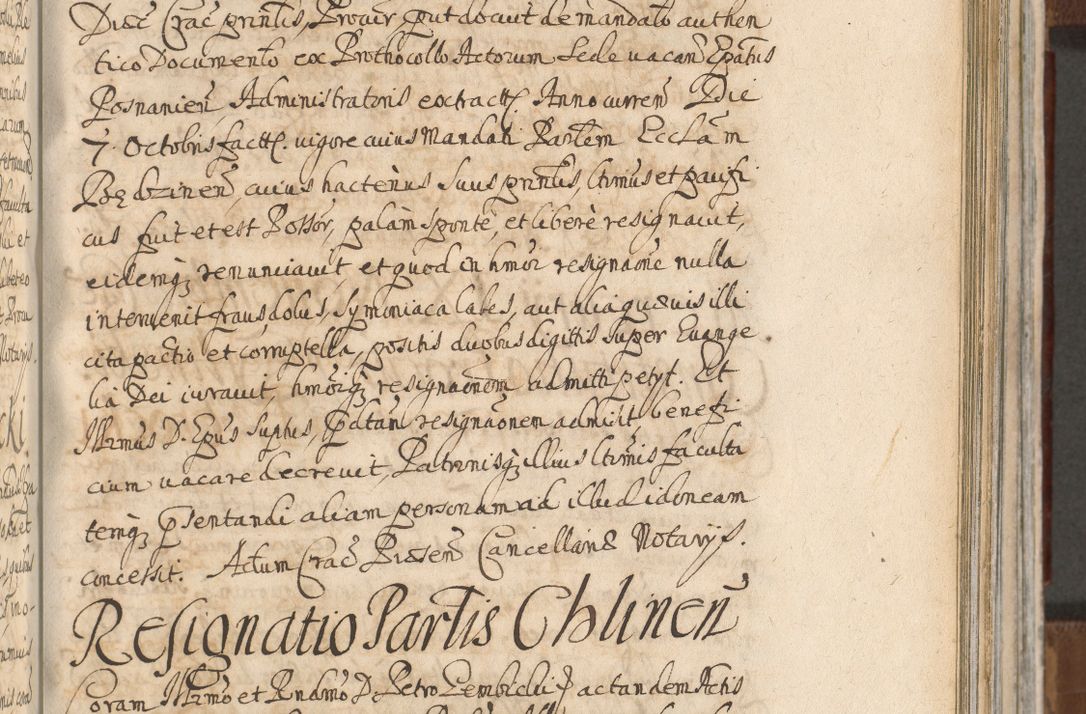 Diæc Crac͞ prñtis, Procur͞ put docuit de mandato authen
tico Documento ex Prothocollo Actorum Sede vacan͞ Ep̃atus
Posnanien͞ Administratoris extract͞ Anno curren͞ Die
7. Octobris fact͞. vigore cuius Mandati Parl͞em Eccl͞am
Będzinen͞ cuius hactenus suus prñtis, ltimus et pacifi
cus fuit et est Possor͞, palam sponte, et liberè resignavit,
eidemq₃ renunciavit, et quod in hmõi resignaõne nulla
intervenit fraus, dolus, symoniaca labes, aut alia quævis illi
cita pactio et corruptella, positis duobus digittis super Evange
lia Dei iuravit, hmõiq₃ resignaõnem admitti petyt. Et
Illrimus D. Ep̃us Suptus, p̃tam resignaõnem admisit, benefi
cium vacare decrevit, Patronisq₃ illius ltimis faculta
temq₃ p̃sentandi aliam personam ad illud idoneam
concessit. Actum Crac͞ Præsen͞ Cancellariæ Notarys.
Resignatio Partis Chlinen͞
Coram Illrimo et Rndmo D. Petro Gembicki p̃ acta eandem Actis